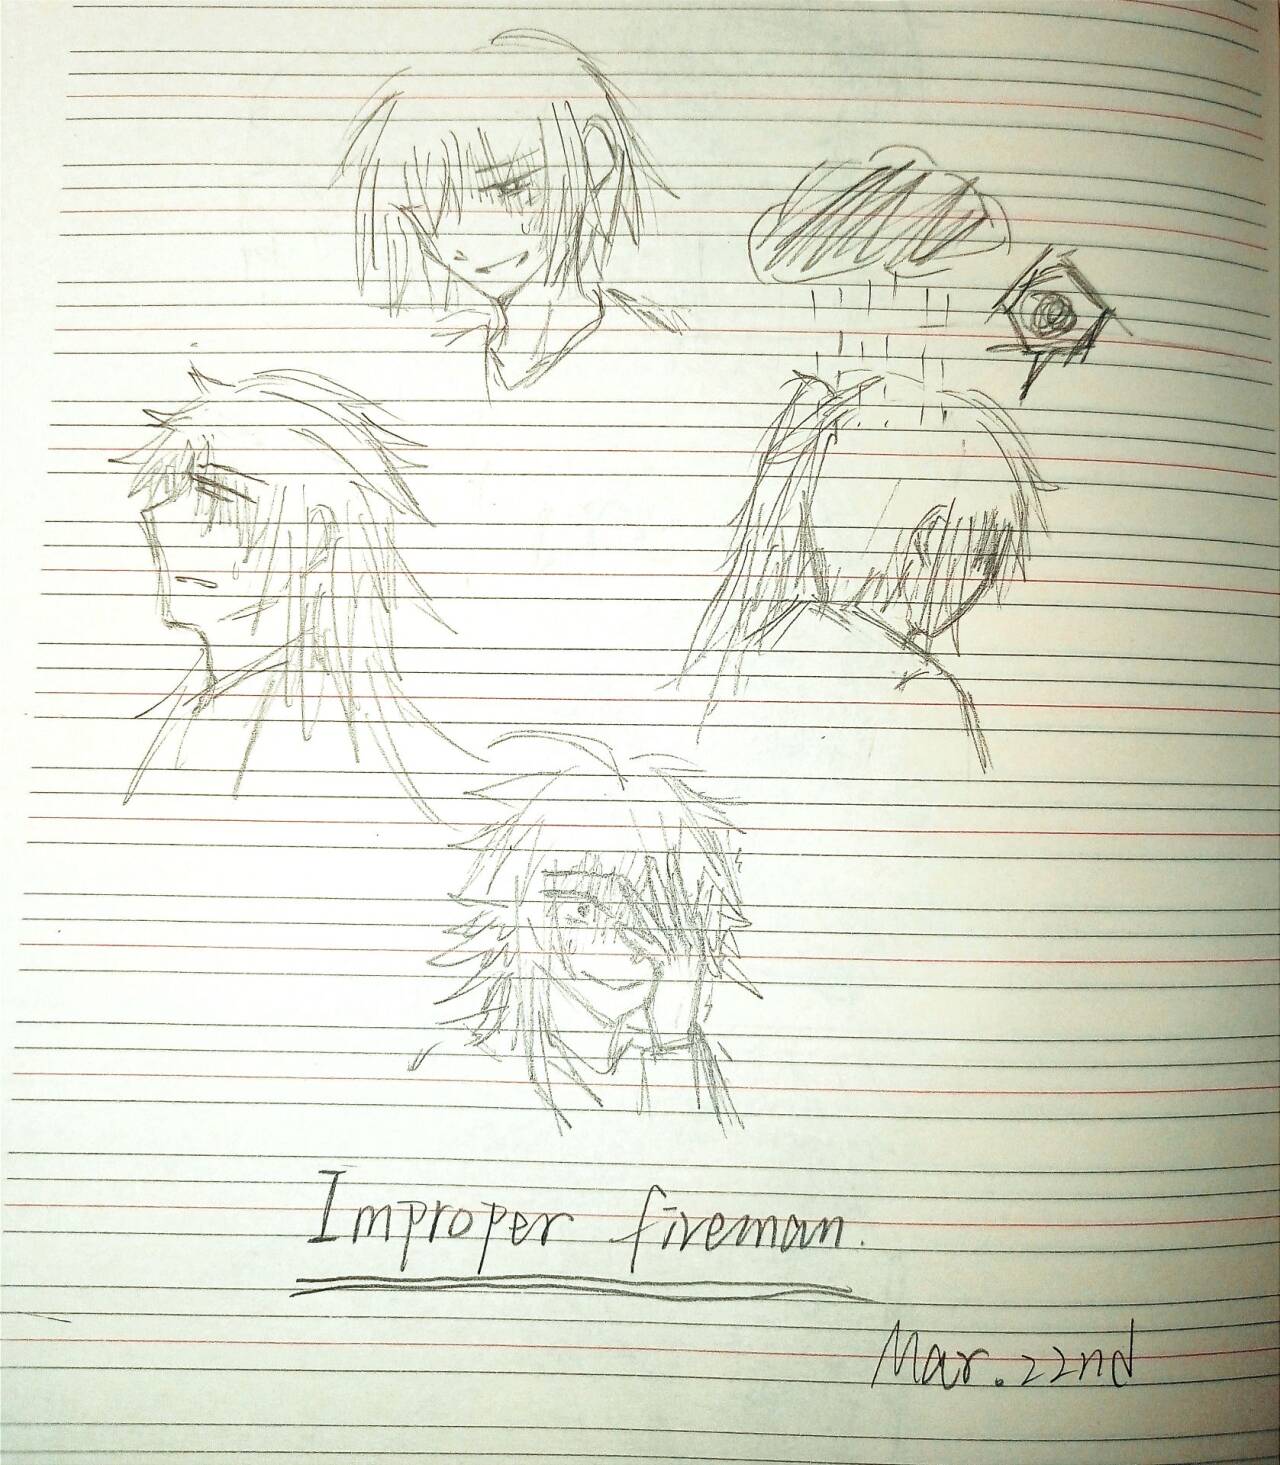 Improper fireman.
Mar.22nd